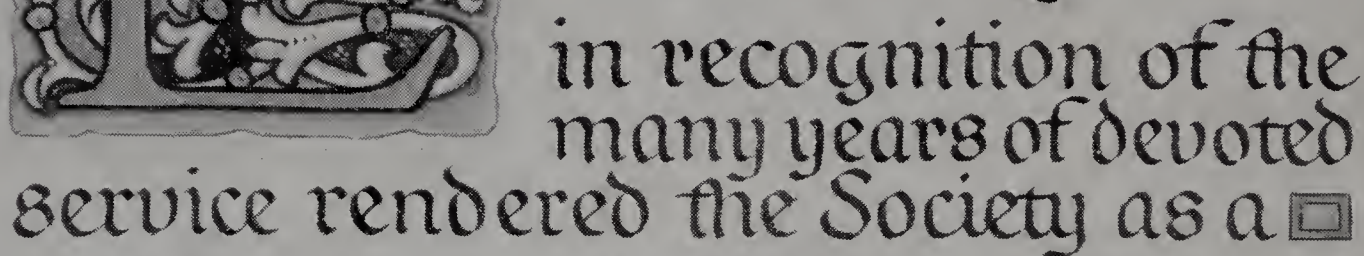 in recognition of the
many years of devoted
service rendered the Society as a